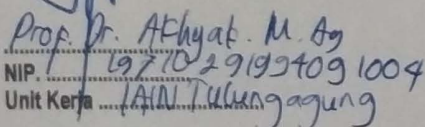 Prof. Dr. Akhyak. M. Ag
NIP. 19710291994091004
Unit Kerja IAIN Tulungagung